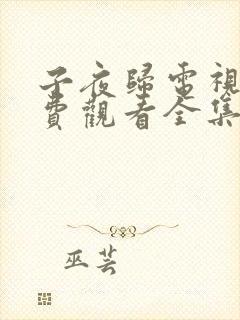 子夜歸電視
費觀看全集
巫芸